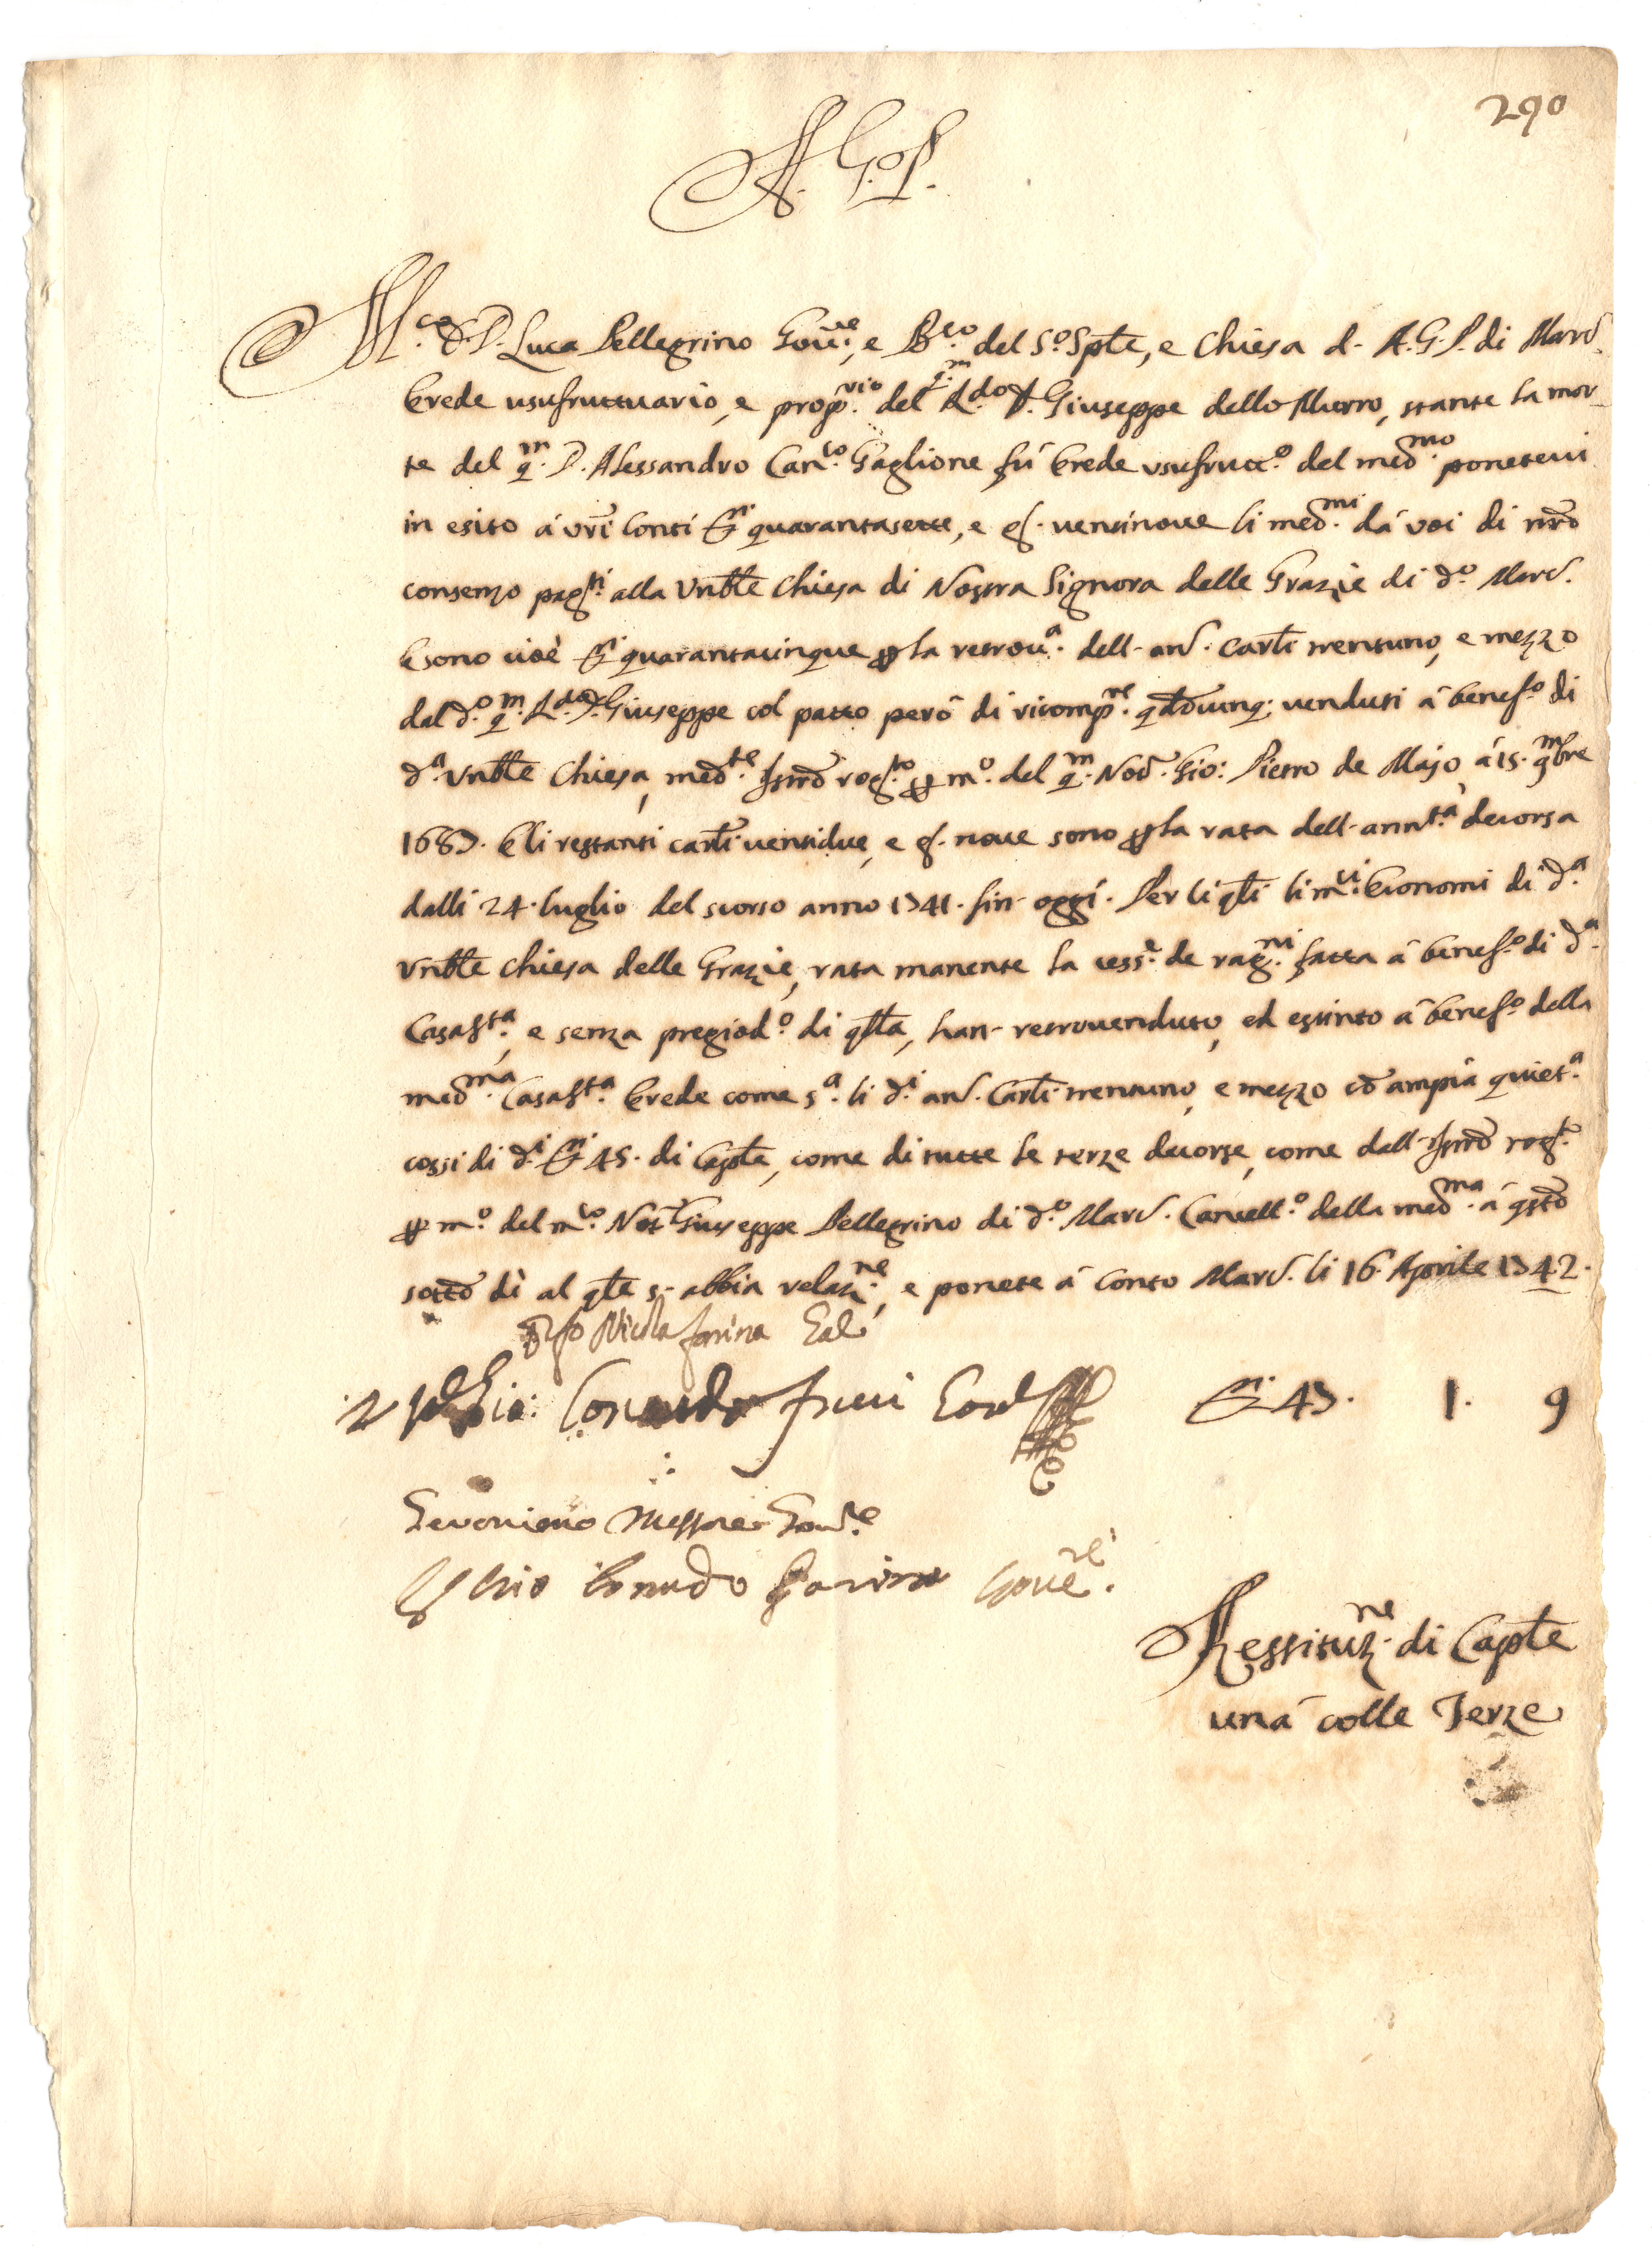 290
A. G. P.
M.co D. D. Luca Pellegrino Gou.re, e B.co del S.o Spte, e Chiesa d. A. G. P. di Mard.
Erede usufruttuario, e prop.rio del q.m R.do D. Giuseppe dello Murro, stante la mor-
te del q.m D. Alessandro Can.co Gaglione fù Erede vsufrutt.o del med.mo poneteui
in esito á vri Conti D.ni quarantasette, e g. uentinoue li med.mi dá voi di nro
consenzo pag.ti alla Vnble Chiesa di Nostra Signora delle Grazie di d.o Mard.
E sono cioè D.ni quarantacinque p la retrou.a dell- an. Carli trentuno, e mezzo
dal d.o q.m R.do D. Giuseppe col patto peró di ricomp.re qdocunq; venduti á benef.o di
d.a Vnble Chiesa, med.te Istro rog.to p m.o del q.m Not. Gio: Pietro de Majo á 15. 9mbre
1687. E li restanti carli uentidue, e g. noue sono p la rata dell- annt.a decorsa
dalli 24. luglio del scorso anno 1741. fin- oggi. Per li qli li m.ci Economi di d.a
Vnble Chiesa delle Grazie, rata manente la cess.e de rag.ni fatta á benef.o di d.a
Casast.a, e senza pregiod.o di qlla, han- retrouenduto, ed estinto á benef.o della
med.ma Casast.a Erede come s.a li d.i an. Carli trentuno, e mezzo co ampia quiet.a
cossi di d.i D.ni 45. di Caple, come di tutte le terze decorse, come dall- Istro rog.t
p m.o del m.co Not.r Giuseppe Pellegrino di d.o Mard. Cancell.o della med.ma á qsto
sotto dì al qle s- abbia relaz.ne, e ponete á conto Mard. li 16. Aprile 1742.
Nicola farina
Gio:
D.ni 47. 1. 9
Geronimo Messore Gou.re
Gou.re
Restituz.ne di Caple
uná colle Terze